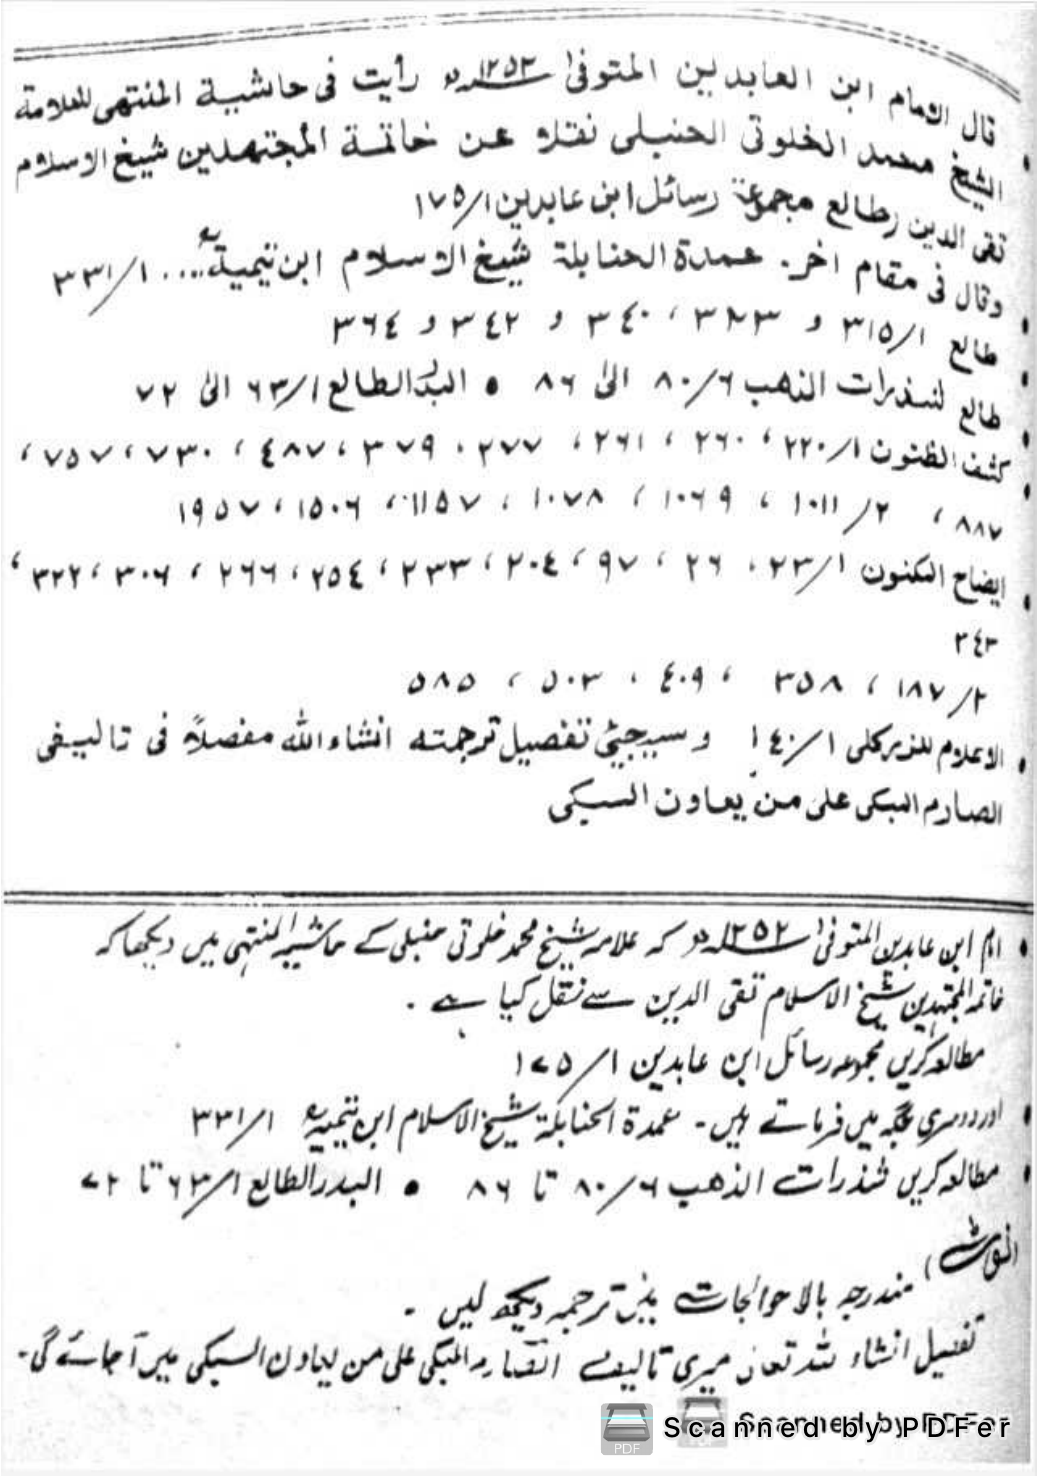 قال الامام ابن العابدين المتوفیٰ ١٢٥٢ھ رأيت فى حاشية المنتهى للعلامة
الشيخ محمد الخلوتى الحنبلى نقلا عن خاتمة المجتهدين شيخ الاسلام
تقى الدين رطالع مجموعة رسائل ابن عابدين ١/١٧٥
وقال فى مقام اخر. عمدة الحنابلة شيخ الاسلام ابن تيميةؒ .... ١/٣٣١
طالع ١/٣١٥ و ٣٢٣، ٣٤٠ و ٣٤٢ و ٣٦٤
طالع لشذرات الذهب ٦/٨٠ الیٰ ٨٦ • البدر الطالع ١/٦٣ الیٰ ٧٢
كشف الظنون ١/٢٢٠، ٢٦٠، ٢٦١، ٢٧٧، ٣٧٩، ٤٨٧، ٧٣٠، ٧٥٧،
٨٨٧، ٢/١٠١١، ١٠٦٩، ١٠٧٨، ١١٥٧، ١٥٠٦، ١٩٥٧
ايضاح المكنون ١/٢٣، ٢٦، ٩٧، ٢٠٤، ٢٣٣، ٢٥٤، ٢٦٦، ٣٠٦، ٣٢٢،
٣٤٣
٢/١٨٧، ٣٥٨، ٤٠٩، ٥٠٣، ٥٨٥
الاعلام للزركلى ١/١٤٠ و سيجئى تفصيل ترجمته انشاء الله مفصلاً فى تاليفى
الصارم المبكى على من يعاون السبكى
امام ابن عابدین المتوفیٰ ١٢٥٢ھ کہ علامہ شیخ محمد خلوتی حنبلی کے حاشیہ المنتہی میں دیکھا کہ
خاتمہ المجتہدین شیخ الاسلام تقی الدین سے نقل کیا ہے ۔
مطالعہ کریں مجموعہ رسائل ابن عابدین ١/١٧٥
اور دوسری جگہ میں فرماتے ہیں ۔ عمدة الحنابلة شیخ الاسلام ابن تیمیہؒ ١/٣٣١
مطالعہ کریں شذرات الذهب ٦/٨٠ تا ٨٦ • البدر الطالع ١/٦٣ تا ٧٢
مندرجہ بالا حوالجات بغیر ترجمہ دیکھ لیں ۔
تفصیل انشاء اللہ تعالیٰ میری تالیف الصارم المبکی علی من یعاون السبکی میں آ جائے گی ۔
Scanned by PDFer